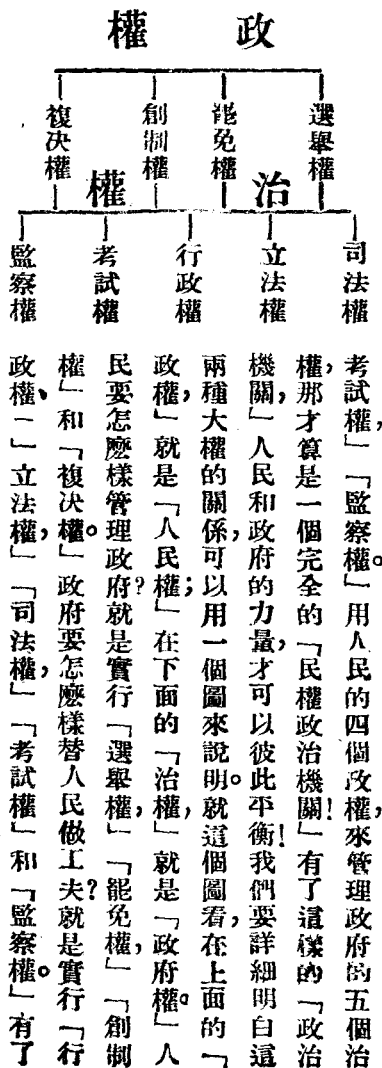 政權
選舉權
罷免權
創制權
複决權
治權
司法權
立法權
行政權
考試權
監察權
考試權，」「監察權。」用人民的四個政權，來管理政府的五個治
權，那才算是一個完全的「民權政治機關！」有了這樣的「政治
機關，」人民和政府的力量，才可以彼此平衡！我們要詳細明白這
兩種大權的關係，可以用一個圖來說明。就這個圖看，在上面的「
政權，」就是「人民權；」在下面的「治權，」就是「政府權。」人
民要怎麼樣管理政府？就是實行「選舉權，」「罷免權，」「創制
權」和「複决權。」政府要怎麼樣替人民做工夫？就是實行「行
政權、」「立法權，」「司法權，」「考試權」和「監察權。」有了